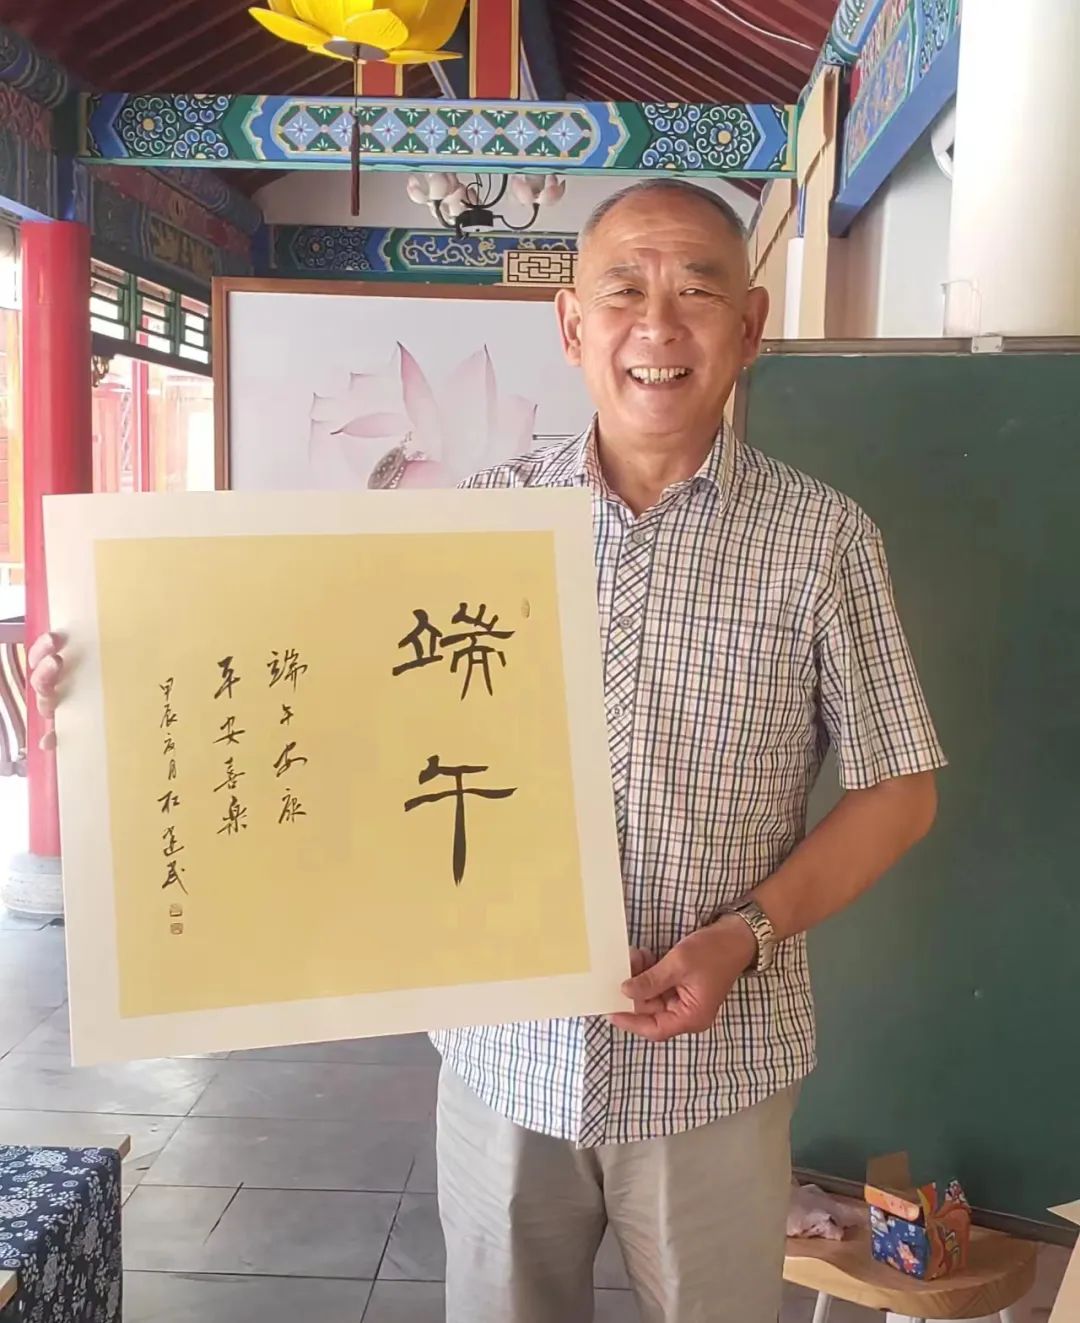 端午
端午安康
平安喜樂
甲辰六月杜建民